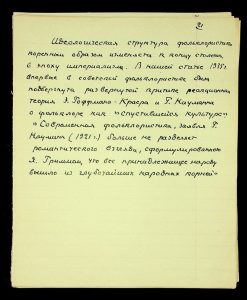 21
Идеологическая структура фольклористики
коренным образом изменяется к концу столетия,
в эпоху империализма. В нашей статье 1935г.
впервые в советской фольклористике была
подвергнута развернутой критике реакционная
теория Э. Гоффмана - Крайера и Г. Наумана
о фольклоре как "спустившейся культуре"
"Современная фольклористика, заявлял Г.
Науман (1921г.) больше не разделяет
романтического взгляда, сформулированного
Я. Гриммом, что все принадлежащее народу
вышло из глубочайших народных корней"